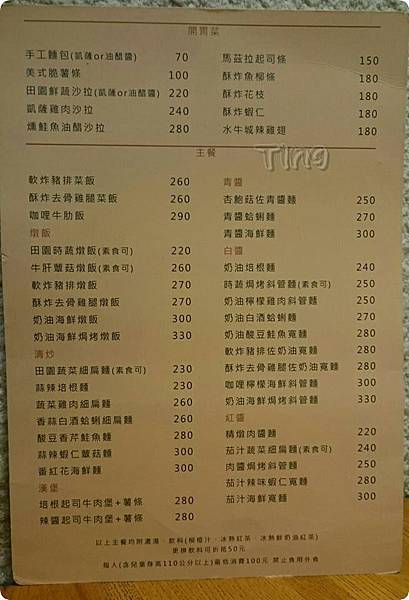 開胃菜
手工麵包(凱薩or油醋醬) 70
美式脆薯條 100
田園鮮蔬沙拉(凱薩or油醋醬) 220
凱薩雞肉沙拉 240
燻鮭魚油醋沙拉 280
馬茲拉起司條 150
酥炸魚柳條 180
酥炸花枝 180
酥炸蝦仁 180
水牛城辣雞翅 180
Ting
主餐
軟炸豬排菜飯 260
酥炸去骨雞腿菜飯 260
咖哩牛肋飯 290
燉飯
田園時蔬燉飯(素食可) 220
牛肝蕈菇燉飯(素食可) 260
軟炸豬排燉飯 270
酥炸去骨雞腿燉飯 270
奶油海鮮燉飯 300
奶油海鮮焗烤燉飯 330
清炒
田園蔬菜細扁麵(素食可) 230
蒜辣培根麵 230
蔬菜雞肉細扁麵 260
香蒜白酒蛤蜊細扁麵 260
酸豆香芹鮭魚麵 280
蒜辣蝦仁蕈菇麵 300
番紅花海鮮麵 300
漢堡
培根起司牛肉堡+薯條 280
辣醬起司牛肉堡+薯條 280
青醬
杏鮑菇佐青醬麵 250
青醬蛤蜊麵 270
青醬海鮮麵 300
白醬
奶油培根麵 240
時蔬焗烤斜管麵(素食可) 250
奶油檸檬雞肉斜管麵 250
奶油白酒蛤蜊麵 270
奶油酸豆鮭魚寬麵 280
軟炸豬排佐奶油寬麵 280
酥炸去骨雞腿佐奶油寬麵 280
咖哩檸檬海鮮斜管麵 300
奶油海鮮焗烤斜管麵 330
紅醬
精燉肉醬麵 220
茄汁蔬菜細扁麵(素食可) 240
肉醬焗烤斜管麵 250
茄汁辣味蝦仁寬麵 280
茄汁海鮮麵 300
以上主餐均附濃湯、飲料(柳橙汁、冰熱紅茶、冰熱鮮奶油紅茶)
更換飲料可折抵50元
每人(含兒童身高110公分以上)最低消費100元 禁止食用外食